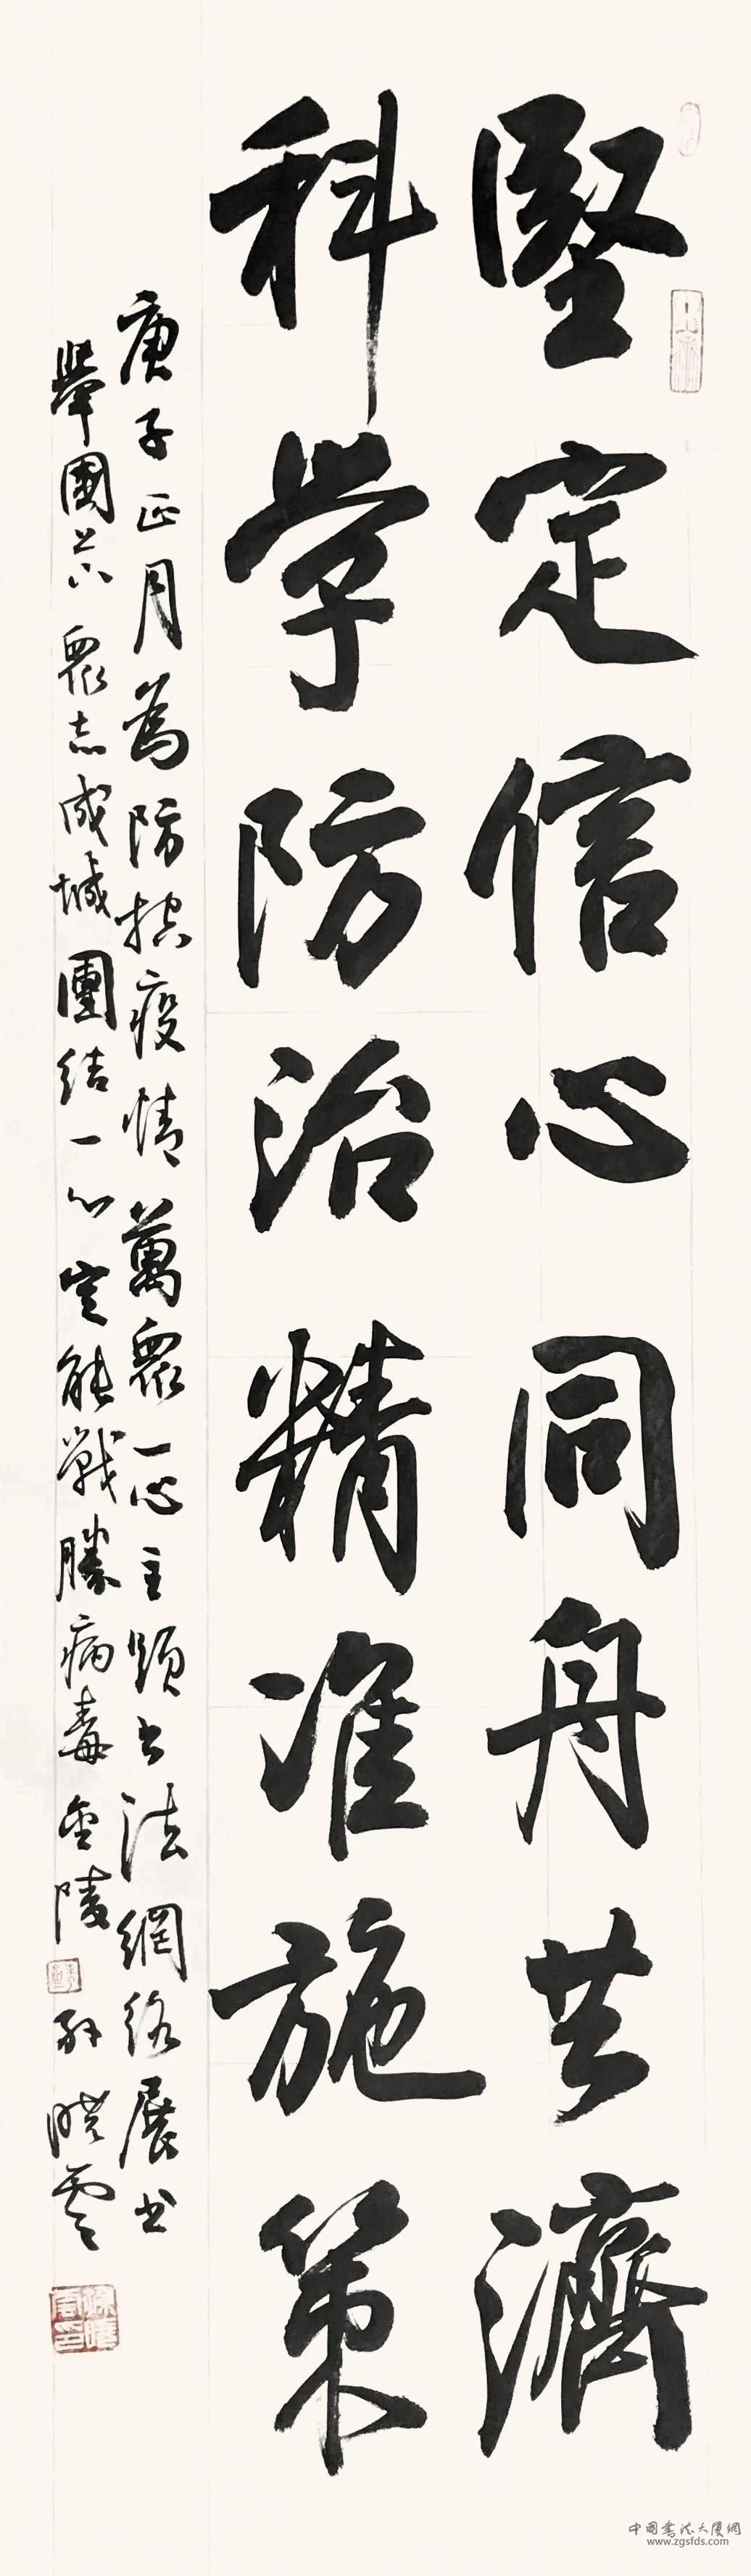 堅定信心同舟共濟
科学防治精准施策
庚子正月為防控疫情萬眾一心主題書法網絡展書
舉國上下眾志成城團結一心定能戰勝病毒金陵孫曉雲
中國書法大廈網
www.zgsfds.com